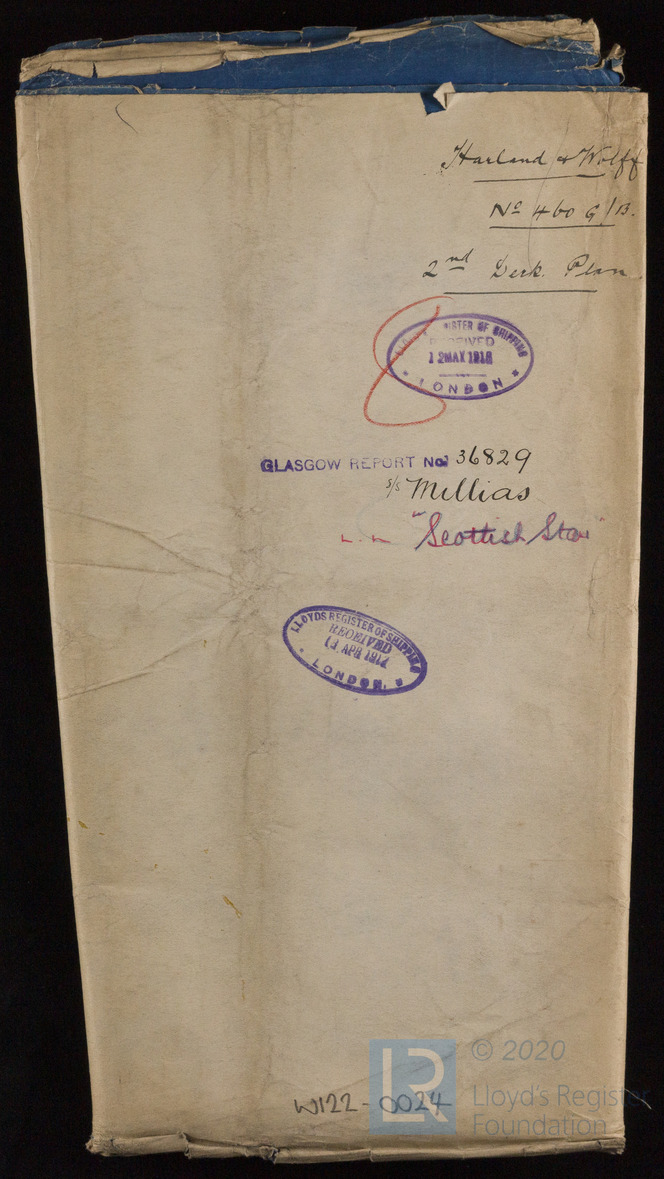 Harland & Wolff
No 460 G/B.
2nd Deck Plan
LLOYDS REGISTER OF SHIPPING
RECEIVED
12 MAY 1918
LONDON
GLASGOW REPORT No 36829
s/s Millias
"Scottish Star"
LLOYDS REGISTER OF SHIPPING
RECEIVED
APR 191
LONDON.
W122-0024
LR
© 2020
Lloyd's Register
Foundation